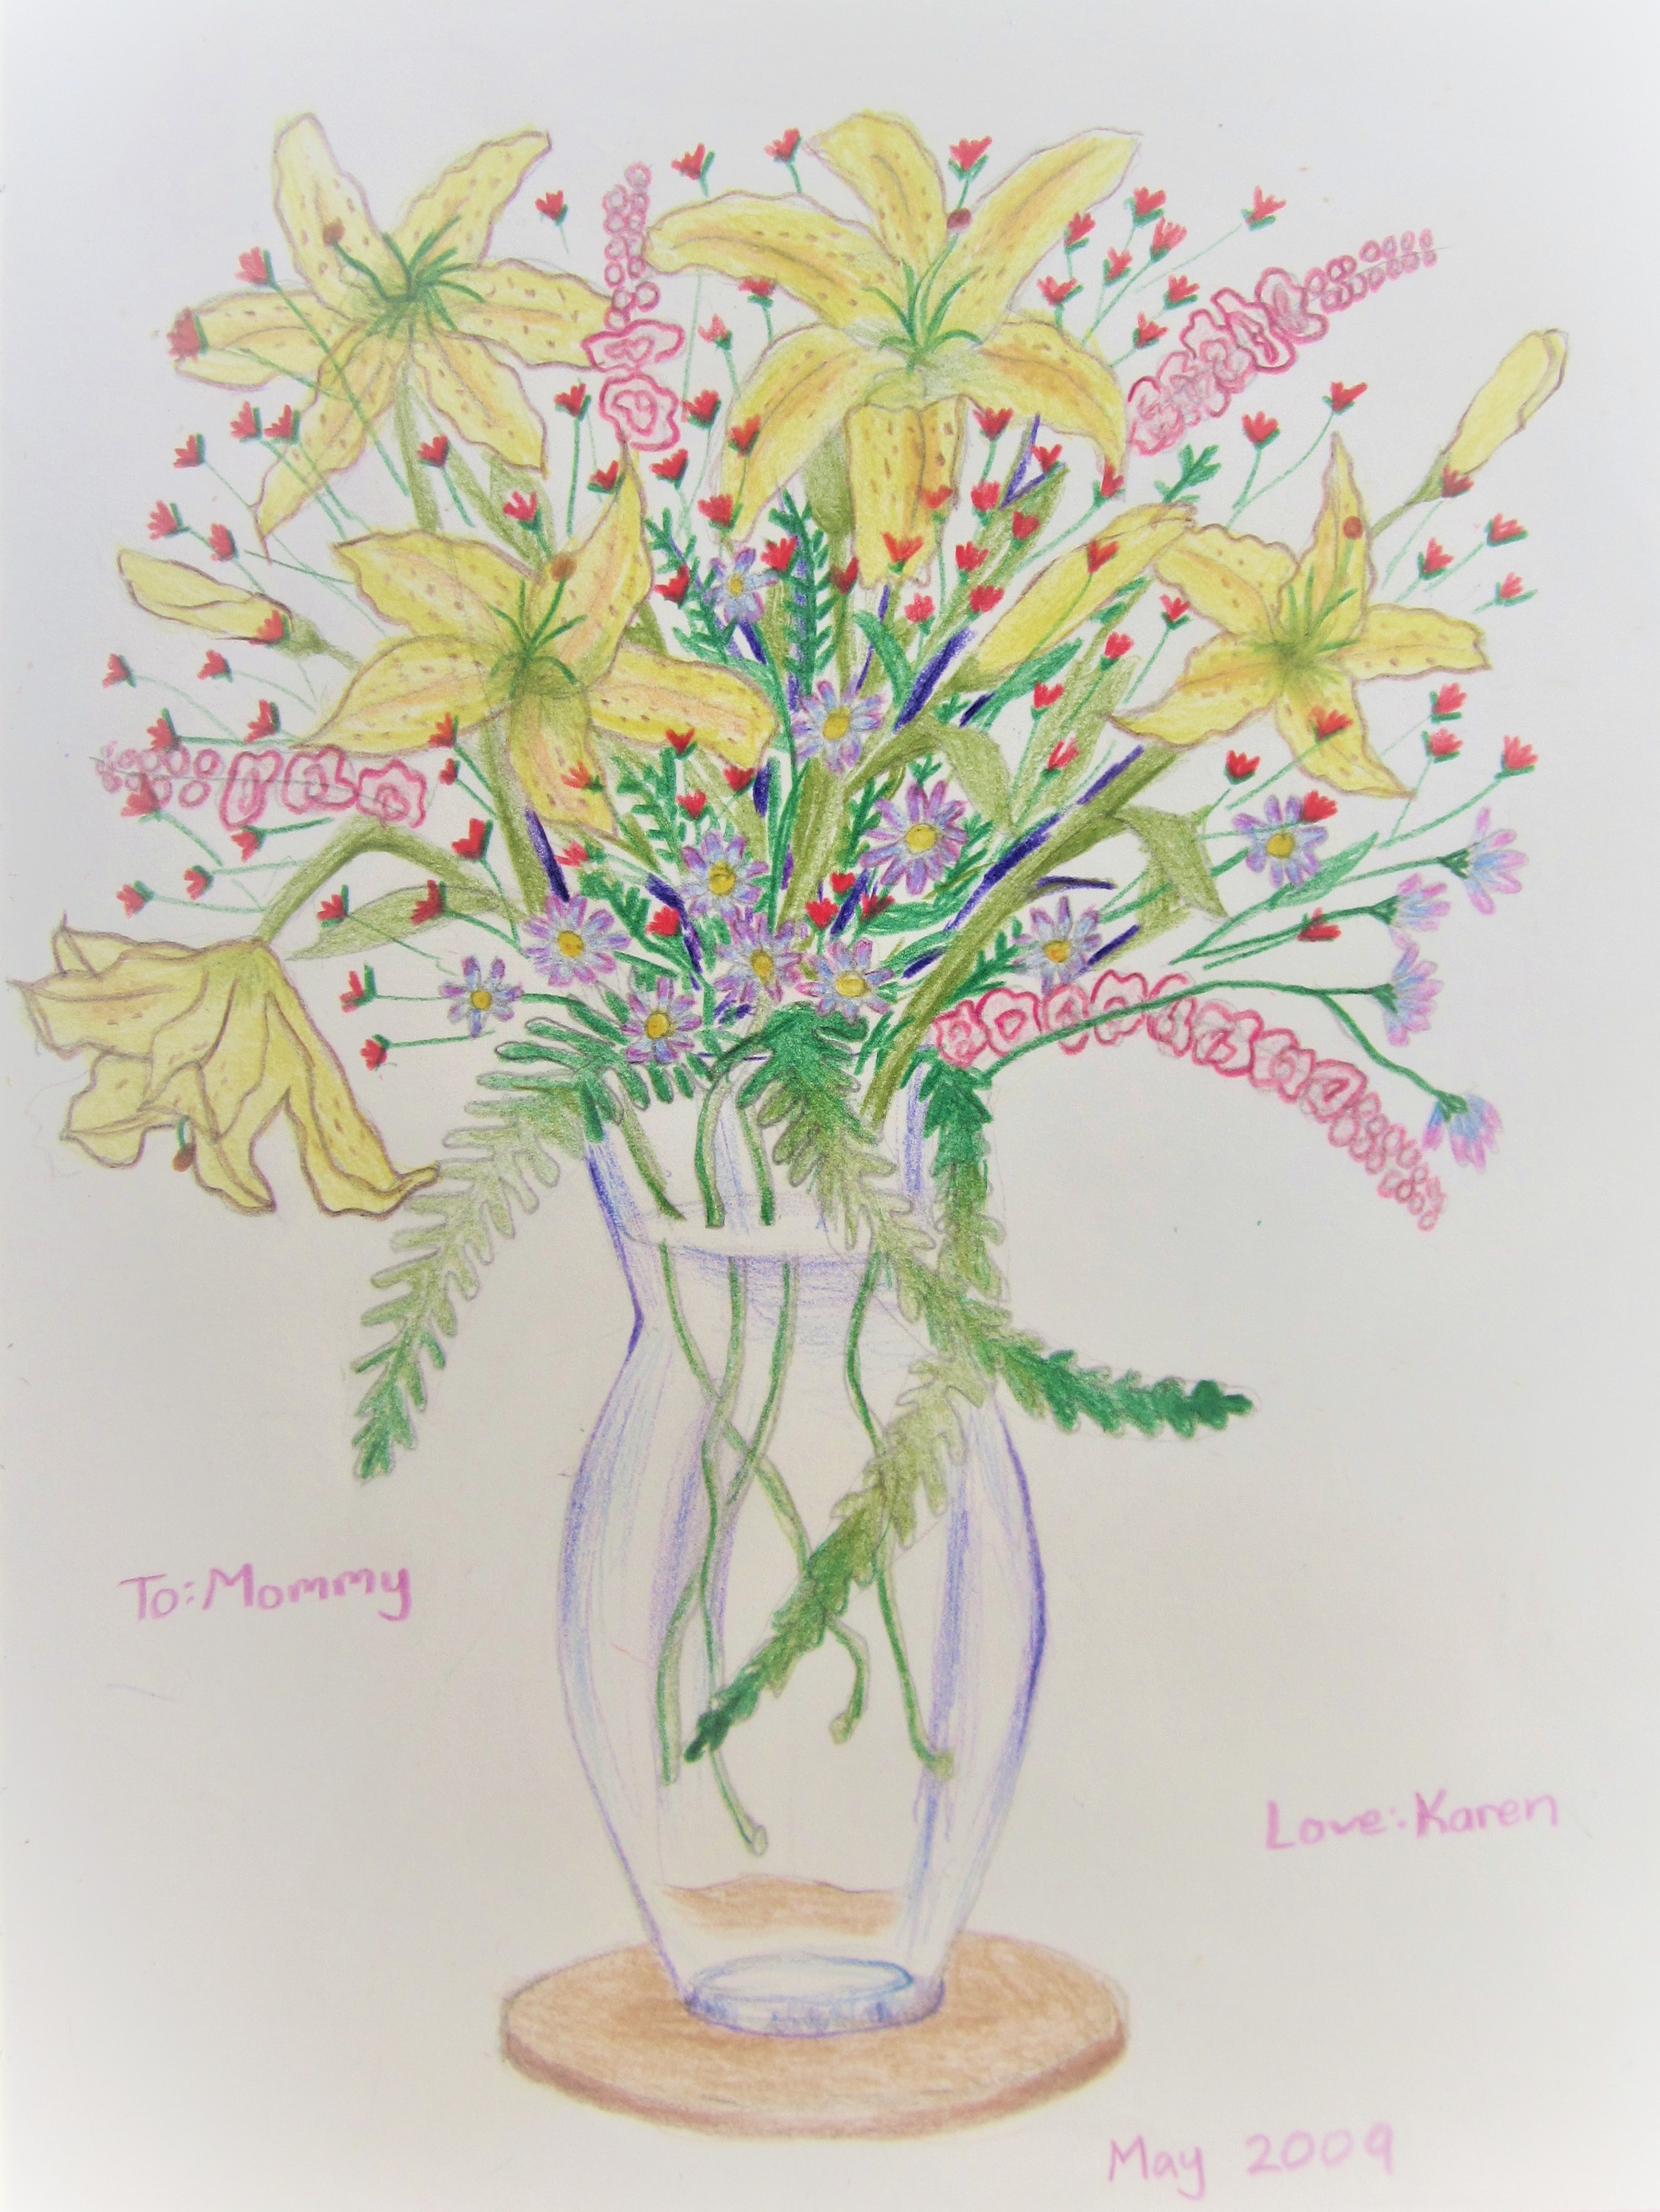 To: Mommy
Love: Karen
May 2009